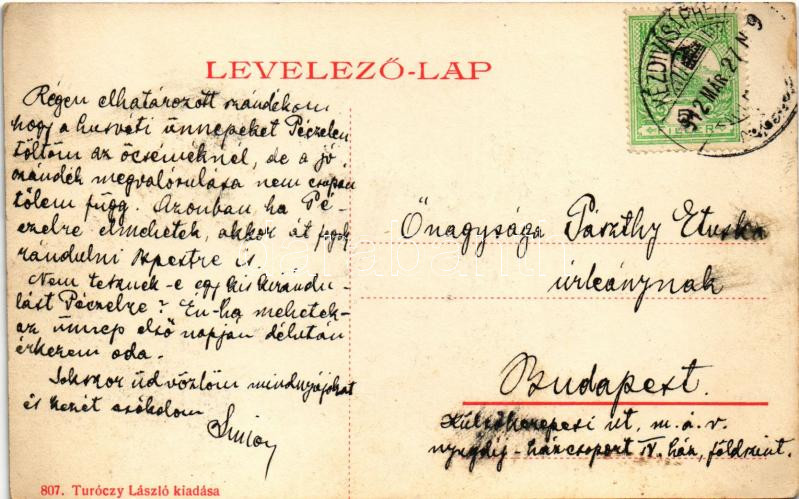 LEVELEZŐ-LAP
Régen elhatározott szándékom
hogy a husvéti ünnepeket Péczelen
töltöm az öcséméknél, de a jó
szándék megvalósulása nem csupán
tőlem függ. Azonban ha Pé-
czelre elmehetek, akkor át fogok
rándulni Bpestre is.
Nem tesznek-e egy kis kirándu-
lást Péczelre? Én-ha mehetek-
az ünnep első napján délután
érkezem oda.
Sokszor üdvözlöm mindnyájokat
és kezét csókolom
Simon
807. Turóczy László kiadása
KÉZDIVÁSÁRHELY
912 MÁR. 27
FILLÉR
Őnagysága Pászthy Etuska
úrleánynak
Budapest.
Külsőkerepesi út, m. á. v.
nyugdíj-házcsoport IV. ház, földszint.